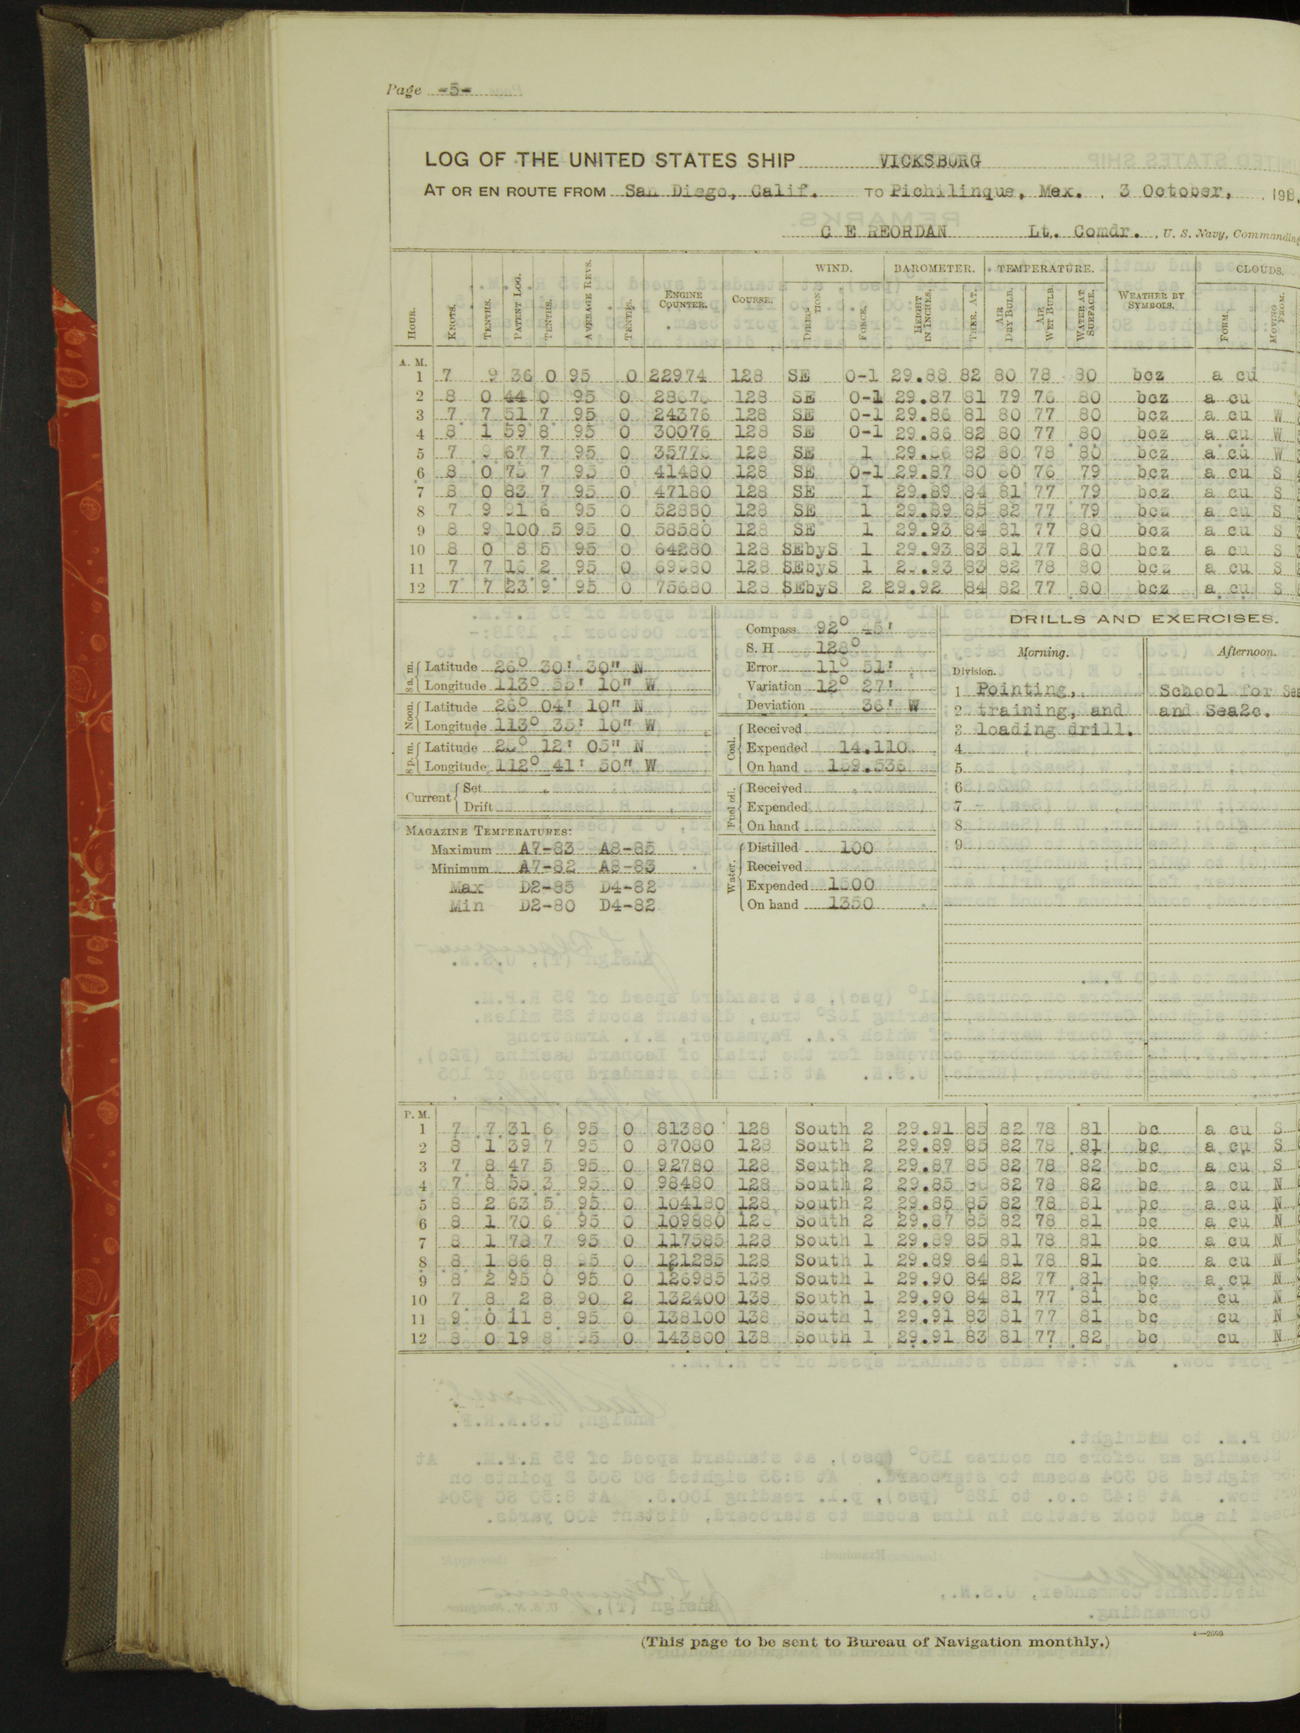 Page -5-
LOG OF THE UNITED STATES SHIP VICKSBURG
AT OR EN ROUTE FROM San Diego, Calif. TO Pichilinque, Mex. 3 October, 191
C E REORDAN Lt. Comdr. U. S. Navy, Commanding
WIND. BAROMETER. TEMPERATURE. CLOUDS.
HOUR. KNOTS. TENTHS. PATENT LOG. TENTHS. AVERAGE REVS. TENTHS. ENGINE COUNTER. COURSE. DIREC- TION. FORCE. HEIGHT IN INCHES. THER. AT. AIR DRY BULB. AIR WET BULB. WATER AT SURFACE. WEATHER BY SYMBOLS. FORM. MOVING FROM.
A. M.
1 7 9 36 0 95 0 22974 128 SE 0-1 29.88 82 80 78 80 bcz a cu
2 8 0 44 0 95 0 128 SE 0-1 29.87 81 79 76 80 bcz a cu
3 7 7 51 7 95 0 24376 128 SE 0-1 29.86 81 80 77 80 bcz a cu W
4 8 1 59 8 95 0 30076 128 SE 0-1 29.86 82 80 77 80 bcz a cu W
5 7 9 67 7 95 0 35776 128 SE 1 29.86 82 80 78 80 bcz a cu W
6 8 0 75 7 95 0 41480 128 SE 0-1 29.87 80 80 76 79 bcz a cu S
7 8 0 83 7 95 0 47180 128 SE 1 29.89 84 81 77 79 bcz a cu S
8 7 9 91 6 95 0 52880 128 SE 1 29.89 85 82 77 79 bcz a cu S
9 8 9 100 5 95 0 58580 128 SE 1 29.93 84 81 77 80 bcz a cu S
10 8 0 8 5 95 0 64280 128 SEbyS 1 29.93 83 81 77 80 bcz a cu S
11 7 7 16 2 95 0 69980 128 SEbyS 1 29.93 83 82 78 80 bcz a cu S
12 7 7 23 9 95 0 75680 128 SEbyS 2 29.92 84 82 77 80 bcz a cu S
8 a. m. Latitude 26° 30' 30" N
Longitude 113° 55' 10" W
Noon. Latitude 26° 04' 10" N
Longitude 113° 35' 10" W
8 p. m. Latitude 25° 12' 05" N
Longitude 112° 41' 50" W
Current Set
Drift
MAGAZINE TEMPERATURES:
Maximum A7-83 A8-85
Minimum A7-82 A8-83
Max D2-85 D4-82
Min D2-80 D4-82
Compass 92° 45'
S. H 128°
Error 11° 51'
Variation 12° 27'
Deviation 36' W
Coal. Received
Expended 14.110
On hand 159.536
Fuel oil. Received
Expended
On hand
Water. Distilled 100
Received
Expended 1500
On hand 1350
DRILLS AND EXERCISES.
Morning. Afternoon.
Division.
1 Pointing, School for Sea
2 training, and and Sea2c.
3 loading drill.
4
5
6
7
8
9
P. M.
1 7 7 31 6 95 0 81380 128 South 2 29.91 85 82 78 81 bc a cu S
2 8 1 39 7 95 0 87080 128 South 2 29.89 85 82 78 81 bc a cu S
3 7 8 47 5 95 0 92780 128 South 2 29.87 85 82 78 82 bc a cu S
4 7 8 55 3 95 0 98480 128 South 2 29.85 82 78 82 bc a cu N
5 8 2 63 5 95 0 104180 128 South 2 29.85 85 82 78 81 bc a cu N
6 8 1 70 6 95 0 109880 128 South 2 29.87 85 82 78 81 bc a cu N
7 8 1 78 7 95 0 117585 128 South 1 29.89 85 81 78 81 bc a cu N
8 8 1 86 8 95 0 121285 128 South 1 29.89 84 81 78 81 bc a cu N
9 8 2 95 0 95 0 126985 138 South 1 29.90 84 82 77 81 bc a cu N
10 7 8 2 8 90 2 132400 138 South 1 29.90 84 81 77 81 bc cu N
11 9 0 11 8 95 0 138100 138 South 1 29.91 83 81 77 81 bc cu N
12 8 0 19 8 95 0 143800 138 South 1 29.91 83 81 77 82 bc cu N
(This page to be sent to Bureau of Navigation monthly.)